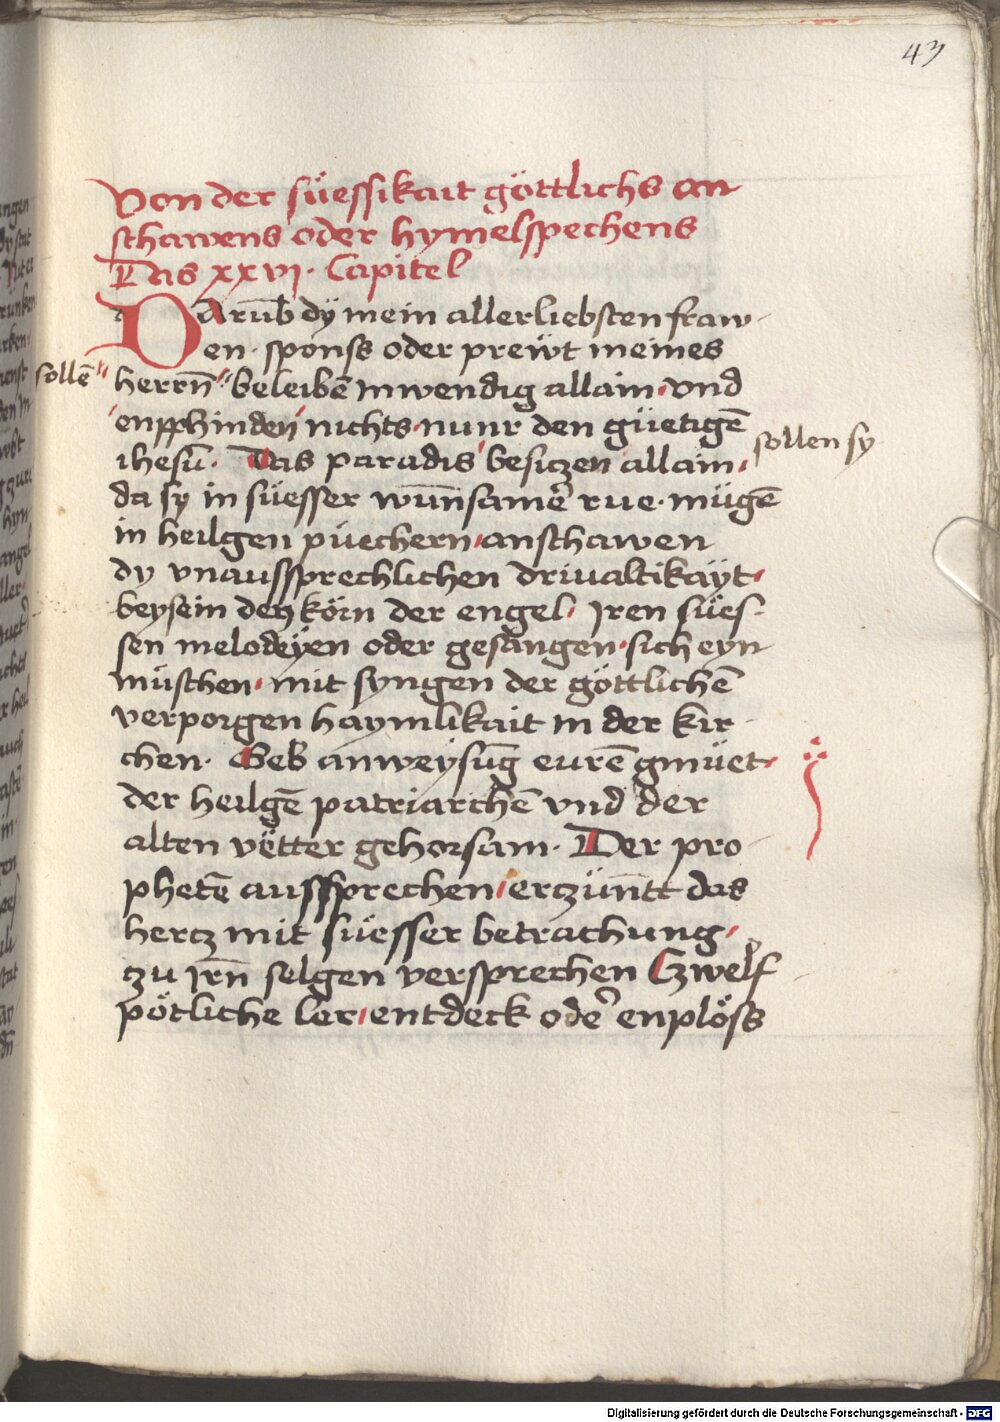 43
Von der süessikait göttlichs an
schawens oder hymelspechens
Das xxvj. Capitel
Darūb dÿ mein allerliebsten fraw
en. sponss oder prewt meines
sollē herrn̄ beleibē inwendig allain. vnd
enpphinden nichts. nunr den güetigē
ihesū. Das paradis besiczen allain. sollen sy
da sy in süesser wūnsamer rue. mügē
in heilgen püechern. anschawen
dy vnaussprechlichen driualtikäyt.
beysein den körn der engel. jren sües
sen melodeyen oder gesängen. sich eyn
müschen. mit syngen der göttlichē
verporgen haymlikait in der kir
chen. Geb anweysūg eurē gmüet.
der heilgē patriarchē vnd der
alten vëtter gehorsam. Der pro
phetē aussprechen. erczün̄tt das
hercz mit süesser betrachung.
zu jrn̄ selgen versprechen Czwelf
pötliche ler. entdeck oder enplöss
Digitalisierung gefördert durch die Deutsche Forschungsgemeinschaft - DFG